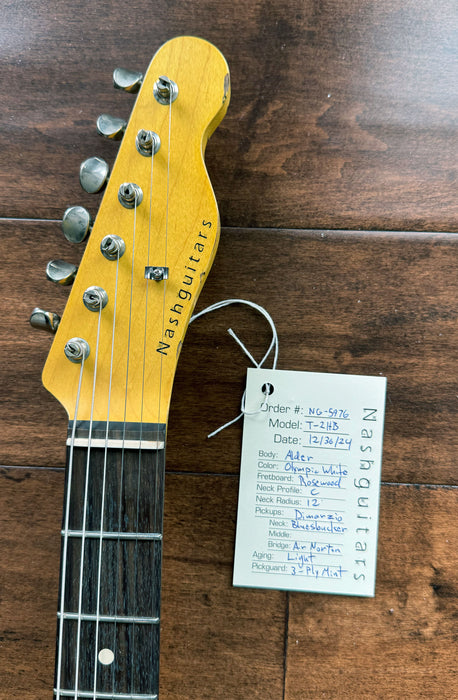 Nashguitars
Order #: NG-5976
Model: T-2HB
Date: 12/30/24
Body: Alder
Color: Olympic White
Fretboard: Rosewood
Neck Profile: C
Neck Radius: 12
Pickups: Dimarzio
Neck: Bluesbucker
Middle:
Bridge: Air Norton
Aging: Light
Pickguard: 3-Ply Mint
Nashguitars